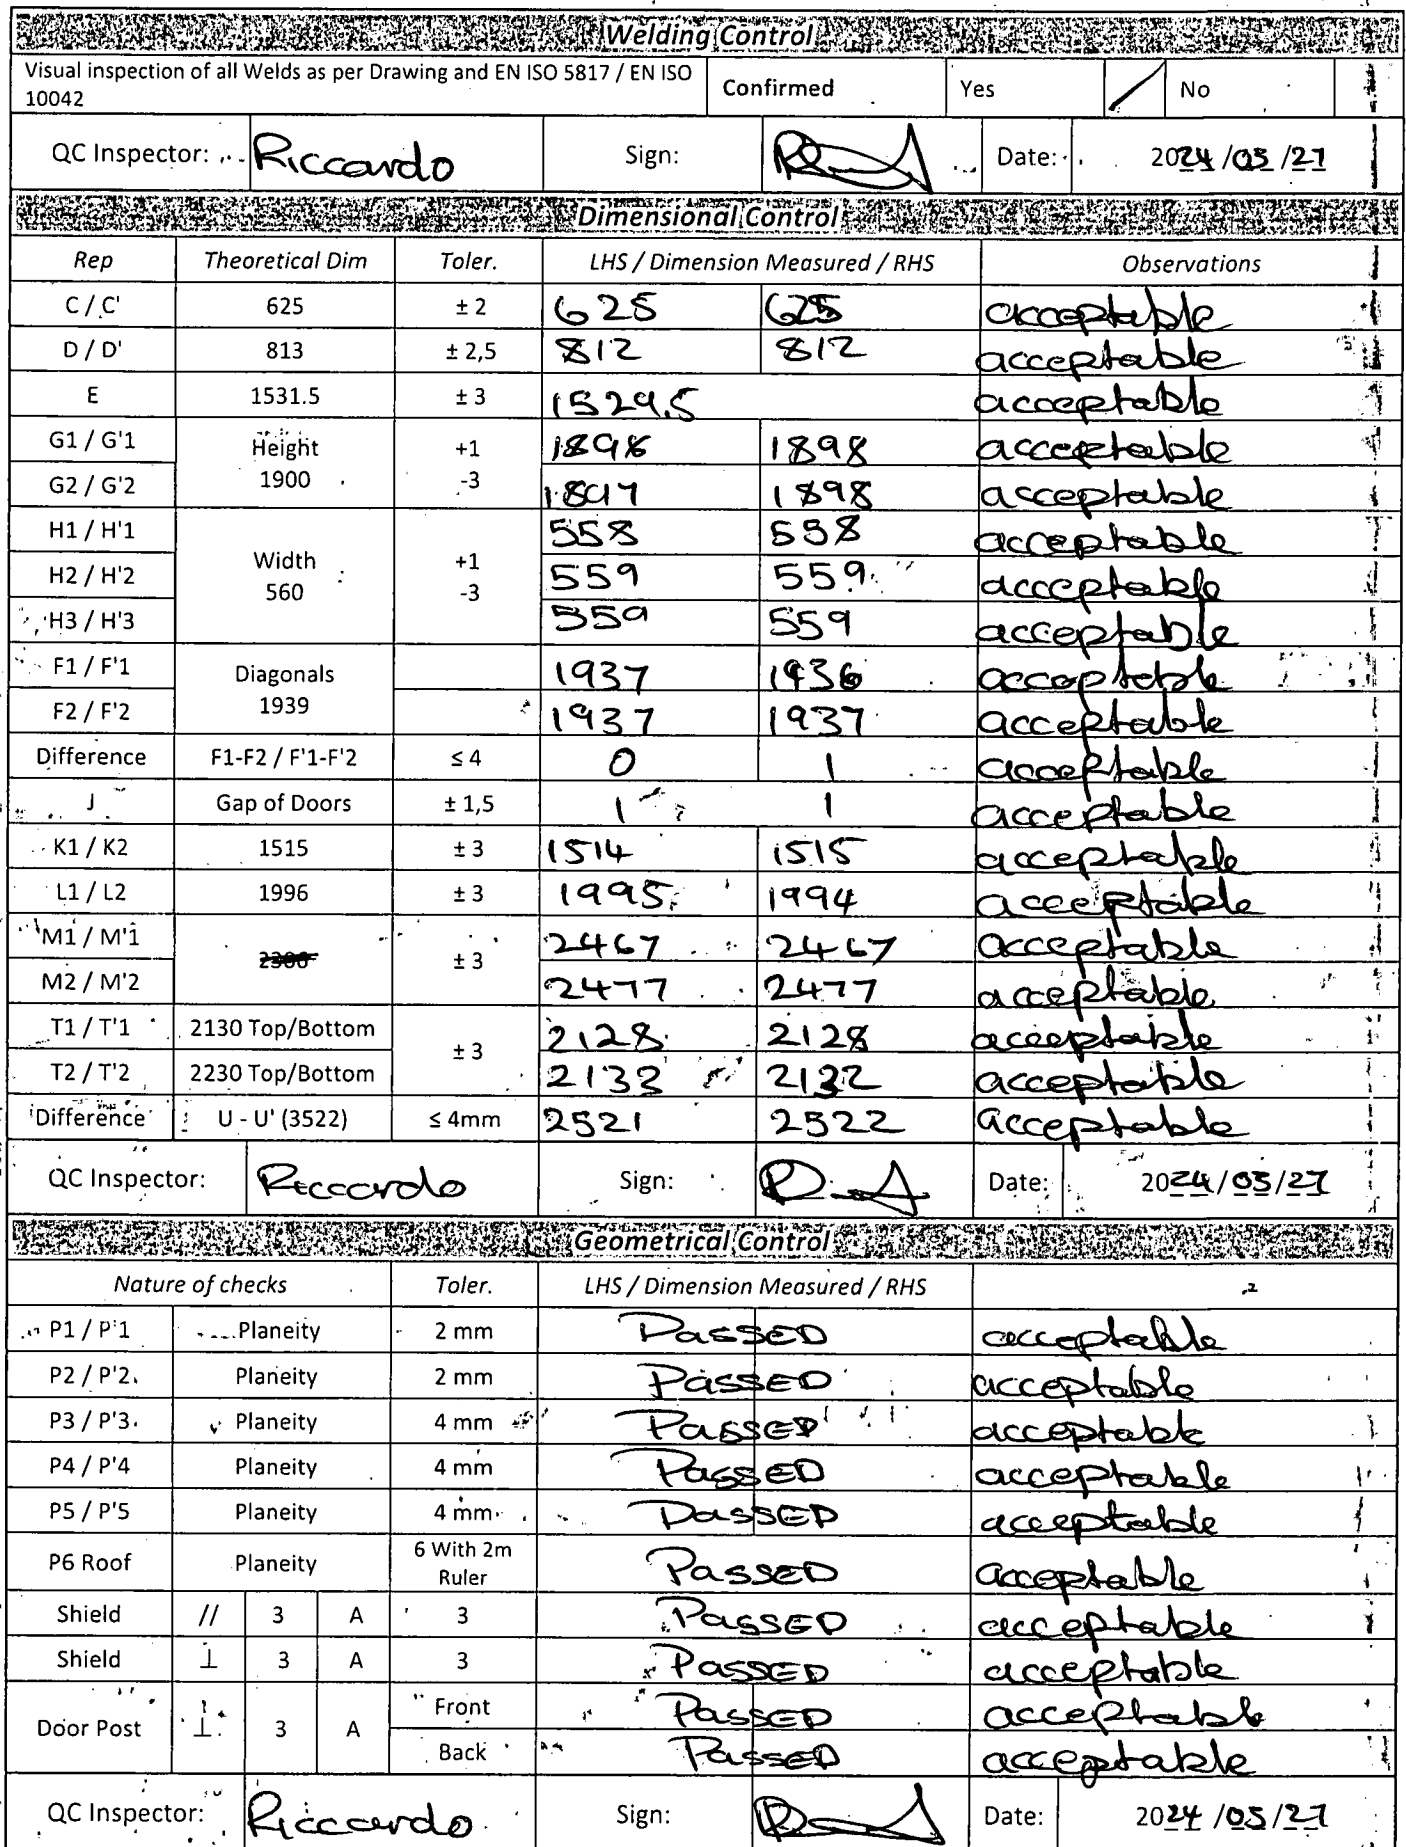 Welding Control
Visual inspection of all Welds as per Drawing and EN ISO 5817 / EN ISO 10042 Confirmed Yes / No
QC Inspector: Riccardo Sign: Date: 2024/05/27
Dimensional Control
Rep Theoretical Dim Toler. LHS / Dimension Measured / RHS Observations
C / C' 625 ± 2 625 625 acceptable
D / D' 813 ± 2,5 812 812 acceptable
E 1531.5 ± 3 1529,5 acceptable
G1 / G'1 Height 1900 +1 -3 1898 1898 acceptable
G2 / G'2 1897 1898 acceptable
H1 / H'1 Width 560 +1 -3 558 558 acceptable
H2 / H'2 559 559 acceptable
H3 / H'3 559 559 acceptable
F1 / F'1 Diagonals 1939 1937 1936 acceptable
F2 / F'2 1937 1937 acceptable
Difference F1-F2 / F'1-F'2 ≤ 4 0 1 acceptable
J Gap of Doors ± 1,5 1 1 acceptable
K1 / K2 1515 ± 3 1514 1515 acceptable
L1 / L2 1996 ± 3 1995 1994 acceptable
M1 / M'1 ± 3 2467 2467 acceptable
M2 / M'2 2477 2477 acceptable
T1 / T'1 2130 Top/Bottom ± 3 2128 2128 acceptable
T2 / T'2 2230 Top/Bottom 2132 acceptable
Difference U - U' (3522) ≤ 4mm 2521 2522 acceptable
QC Inspector: Riccardo Sign: Date: 2024/05/27
Geometrical Control
Nature of checks Toler. LHS / Dimension Measured / RHS
P1 / P'1 Planeity 2 mm PASSED acceptable
P2 / P'2 Planeity 2 mm PASSED acceptable
P3 / P'3 Planeity 4 mm PASSED acceptable
P4 / P'4 Planeity 4 mm PASSED acceptable
P5 / P'5 Planeity 4 mm PASSED acceptable
P6 Roof Planeity 6 With 2m Ruler PASSED acceptable
Shield // 3 A 3 PASSED acceptable
Shield ⊥ 3 A 3 PASSED acceptable
Door Post ⊥ 3 A Front PASSED acceptable
Back PASSED acceptable
QC Inspector: Riccardo Sign: Date: 2024/05/27